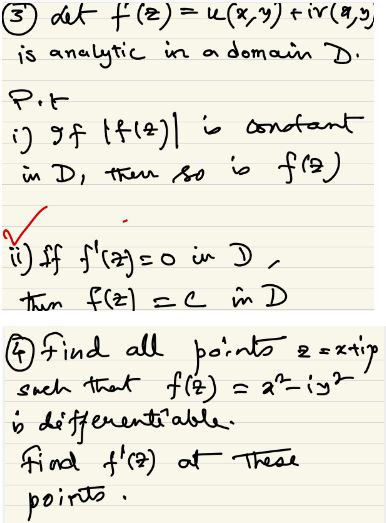 ③ Let f(z) = u(x,y) + iv(x,y)
is analytic in a domain D.
P.t
i) If |f(z)| is constant
in D, then so is f(z)
ii) If f'(z) = 0 in D,
then f(z) = c in D
④ Find all points z = x+iy
such that f(z) = x²-iy²
is differentiable.
Find f'(z) at these
points.